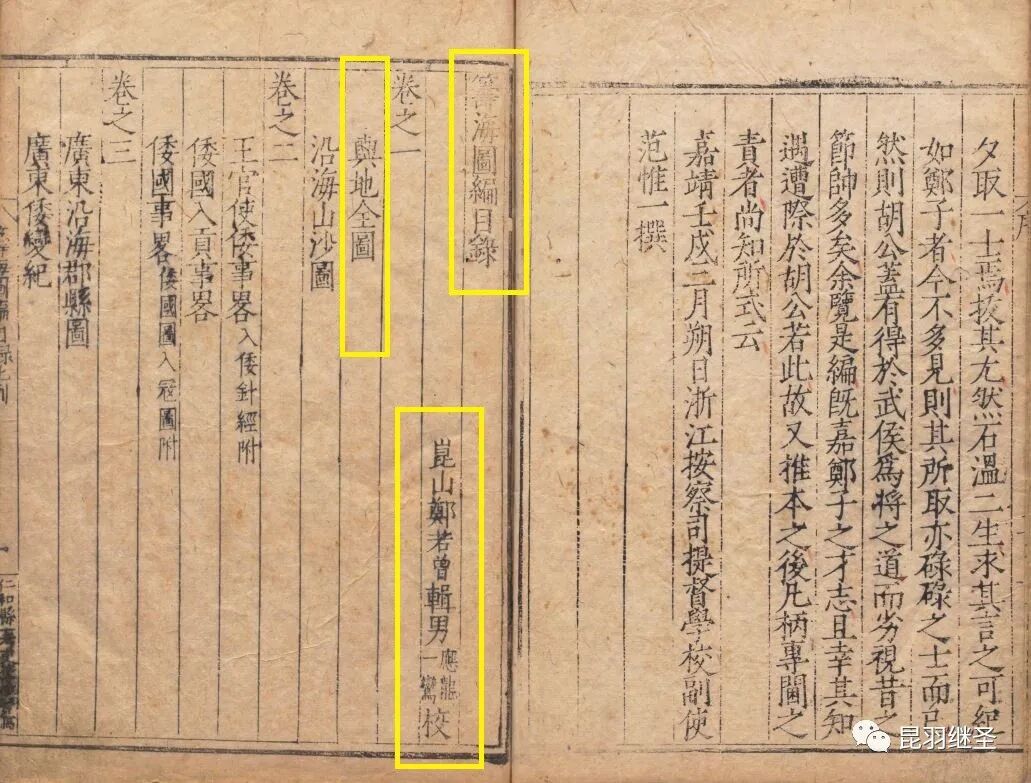 夕取一士焉拔其尤然石溫二生求其言之可紀
如鄭子者今不多見則其所取亦碌碌之士而已
然則胡公蓋有得於武侯爲將之道而劣視昔之
節帥多矣余覽是編既嘉鄭子之才志且幸其知
遇遭際於胡公若此故又推本之後凡柄專閫之
責者尚知所式云
嘉靖壬戌二月朔日浙江按察司提督學校副使
范惟一撰
籌海圖編目錄
崑山鄭若曾輯男應龍一鸞校
卷之一
輿地全圖
沿海山沙圖
卷之二
王官使倭事畧 入倭針經附
倭國入貢事畧
倭國事畧 倭國圖入寇圖附
卷之三
廣東沿海郡縣圖
廣東倭變紀
仁和縣
昆羽继圣